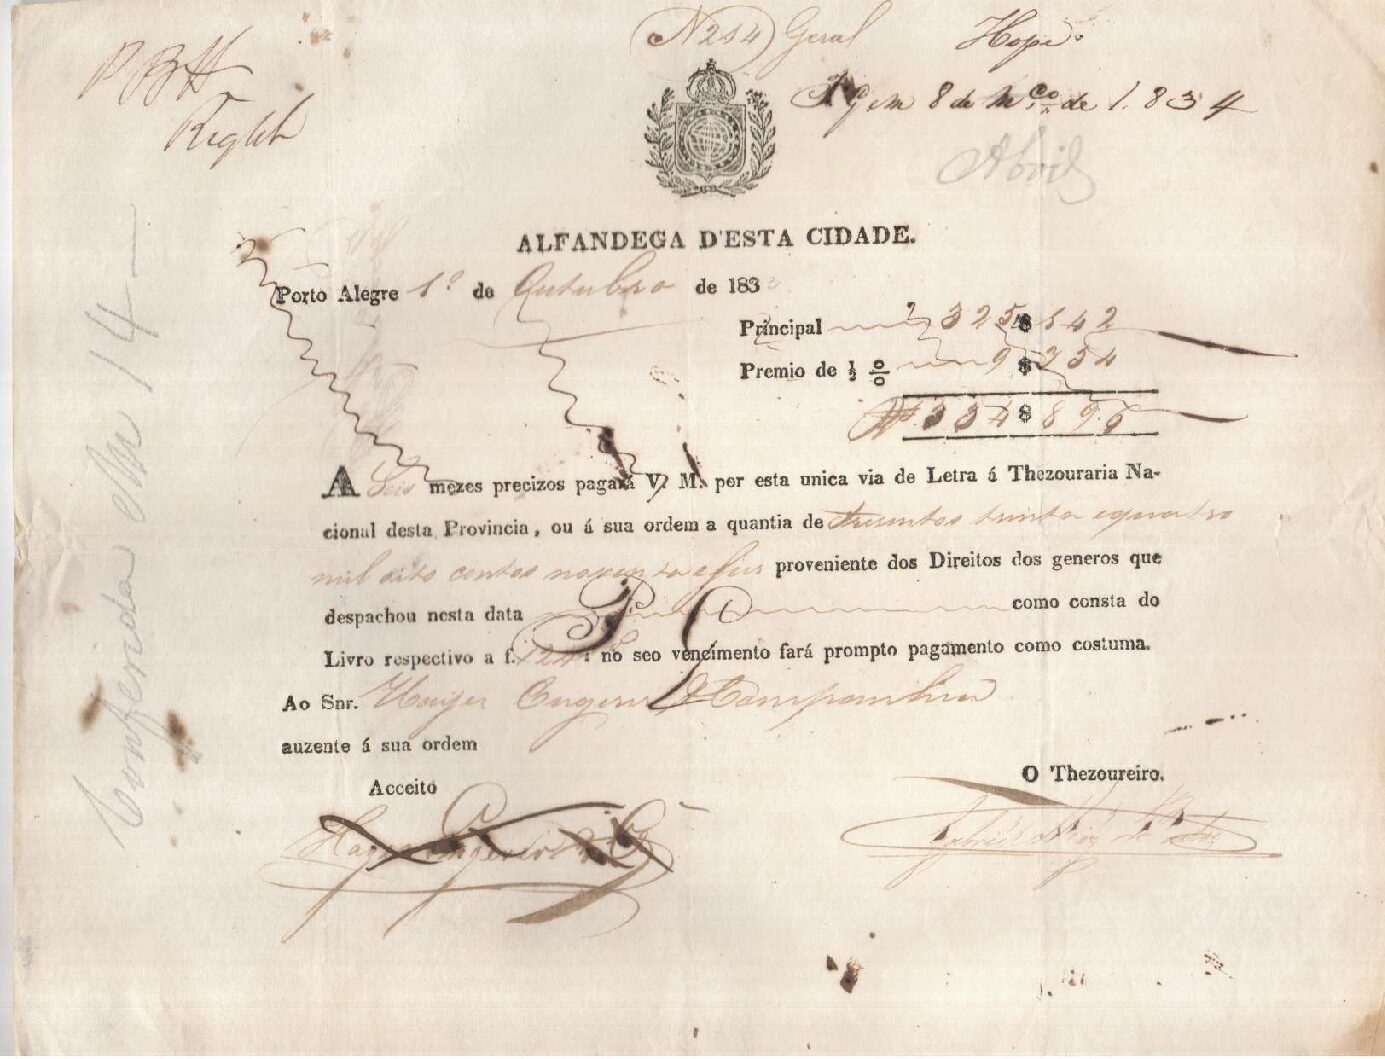 N 214 Geral
Pg em 8 de Mço de 1.834
Abril
ALFANDEGA D'ESTA CIDADE.
Porto Alegre 1º de Outubro de 183
Principal 325$542
Premio de ½ % 9$354
Rs 334$896
A Seis mezes precizos pagará V. M. per esta unica via de Letra á Thezouraria Na-
cional desta Provincia, ou á sua ordem a quantia de trezentos trinta e quatro
mil oito centos noventa e seis proveniente dos Direitos dos generos que
despachou nesta data como consta do
Livro respectivo a f. no seo vencimento fará prompto pagamento como costuma.
Ao Snr. Companhia
auzente á sua ordem
Acceito
O Thezoureiro.
Conferida 14